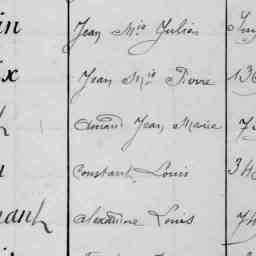 in Jean Mie Julien
x Jean Mie Pierre 136
h Amand Jean Marie 7
Constant Louis 34
nanh Alexandrine Louis 74